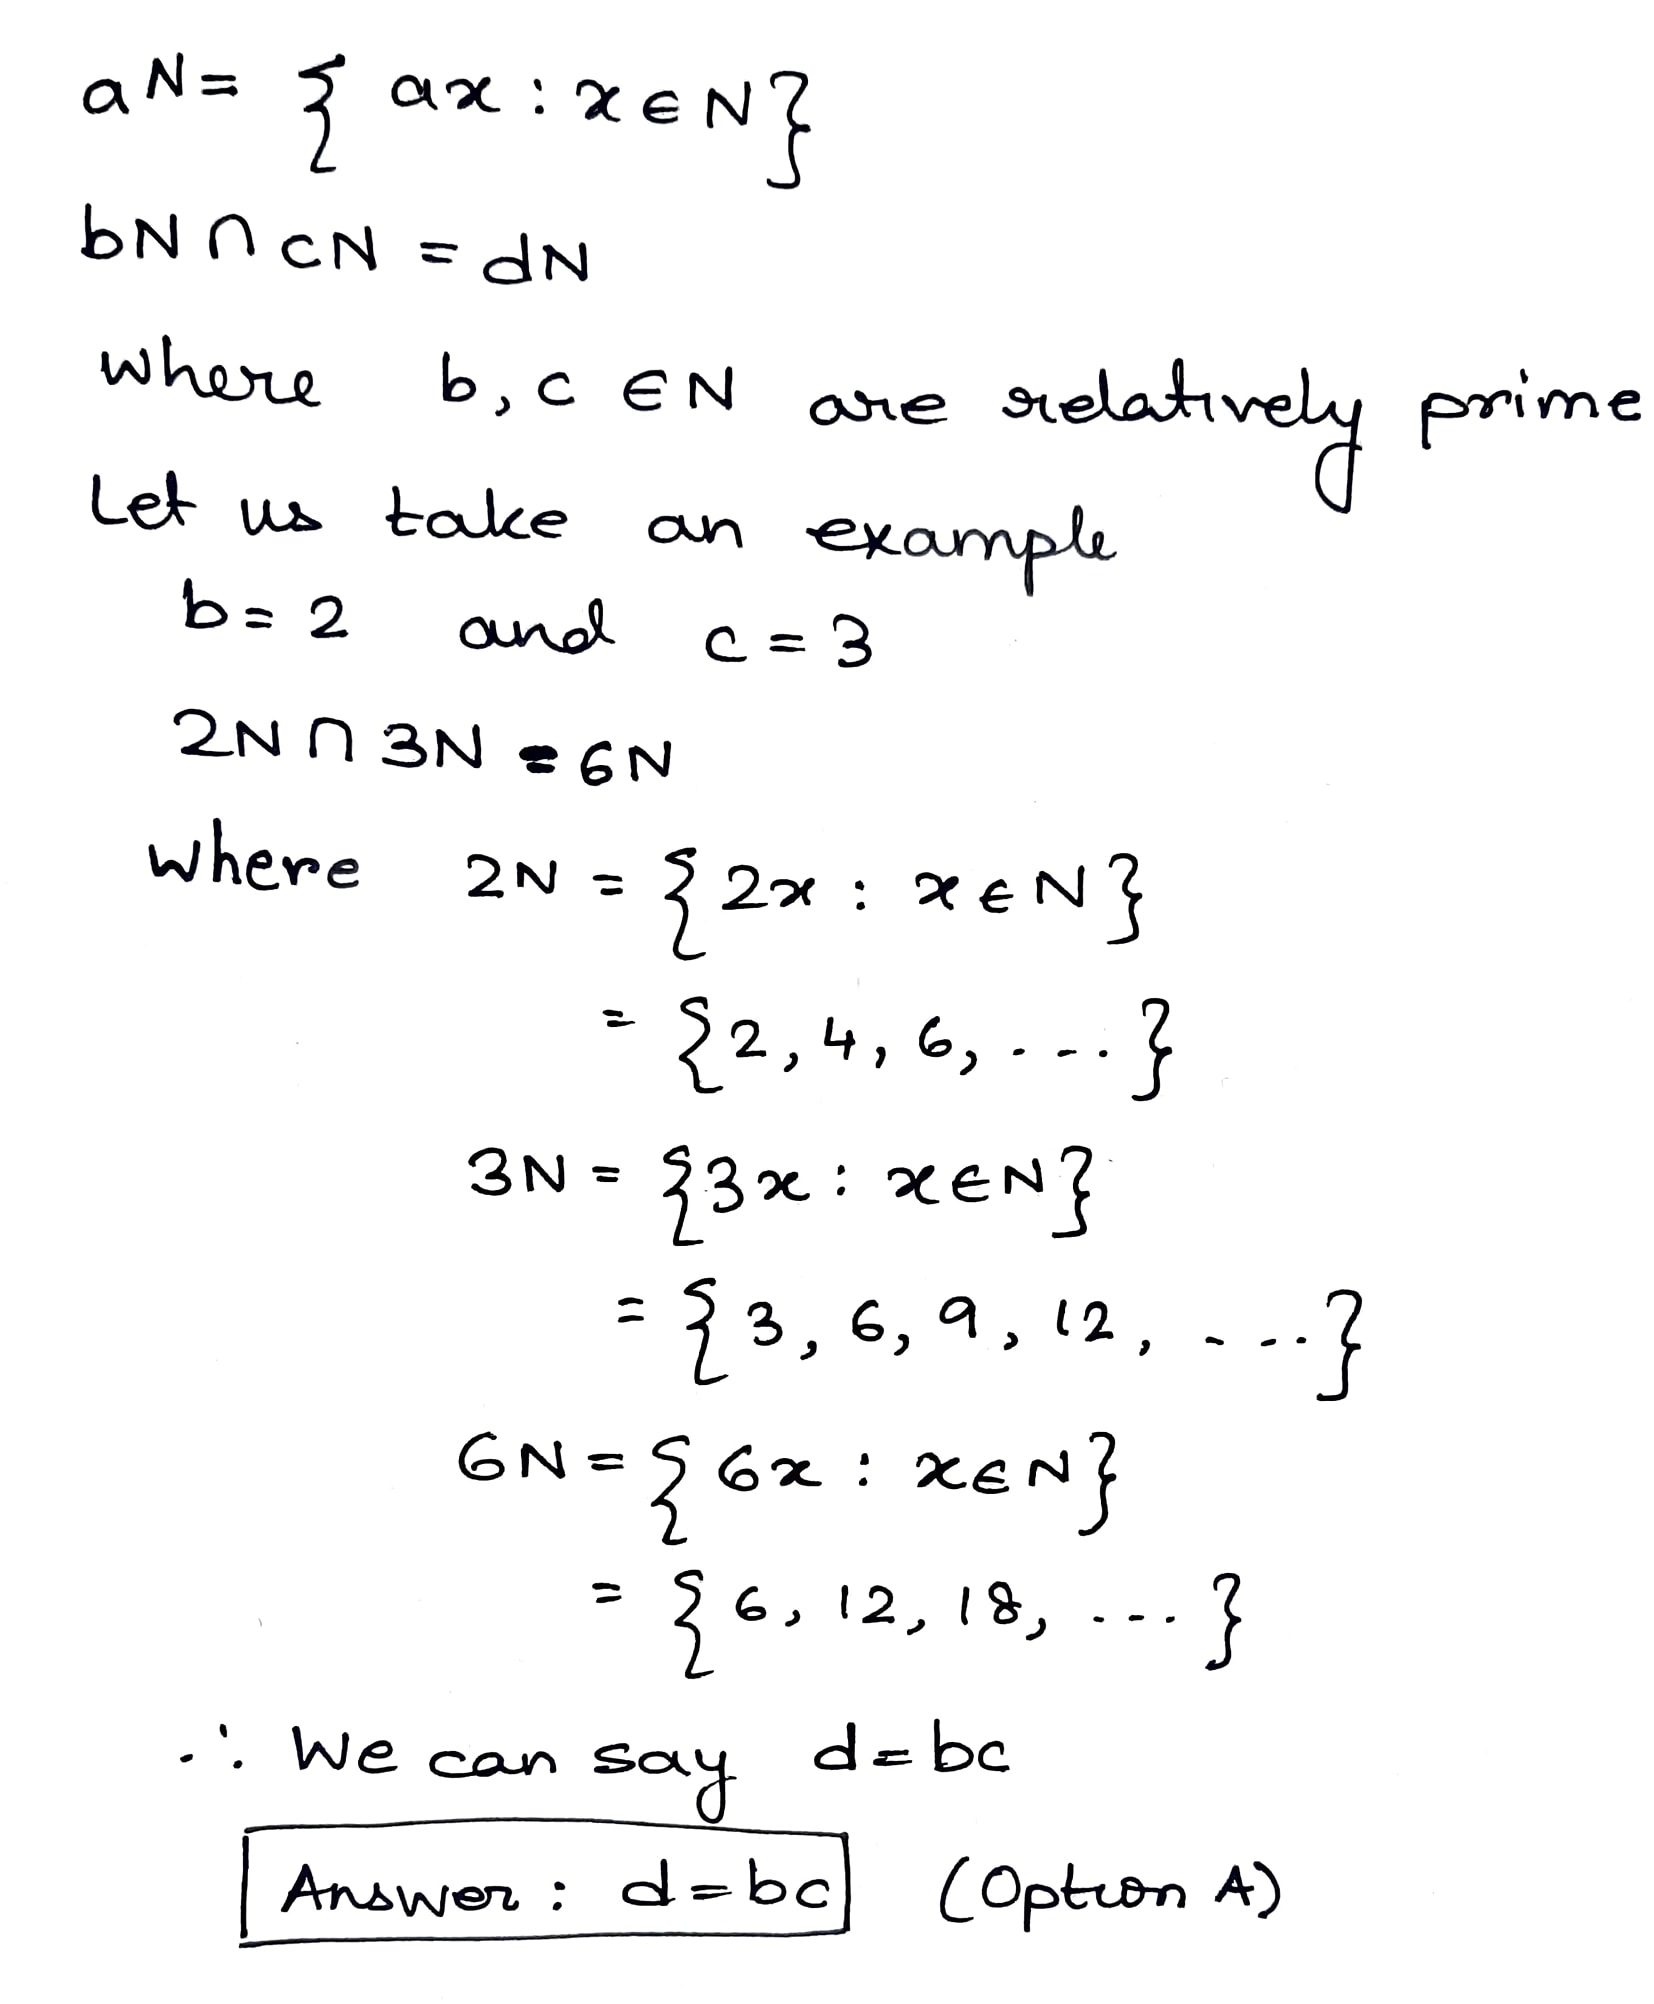 aN = { ax : x ∈ N }
bN ∩ cN = dN
where b, c ∈ N are relatively prime
Let us take an example
b = 2 and c = 3
2N ∩ 3N = 6N
where 2N = { 2x : x ∈ N }
= { 2, 4, 6, .... }
3N = { 3x : x ∈ N }
= { 3, 6, 9, 12, .... }
6N = { 6x : x ∈ N }
= { 6, 12, 18, .... }
∴ We can say d = bc
Answer : d = bc (Option A)